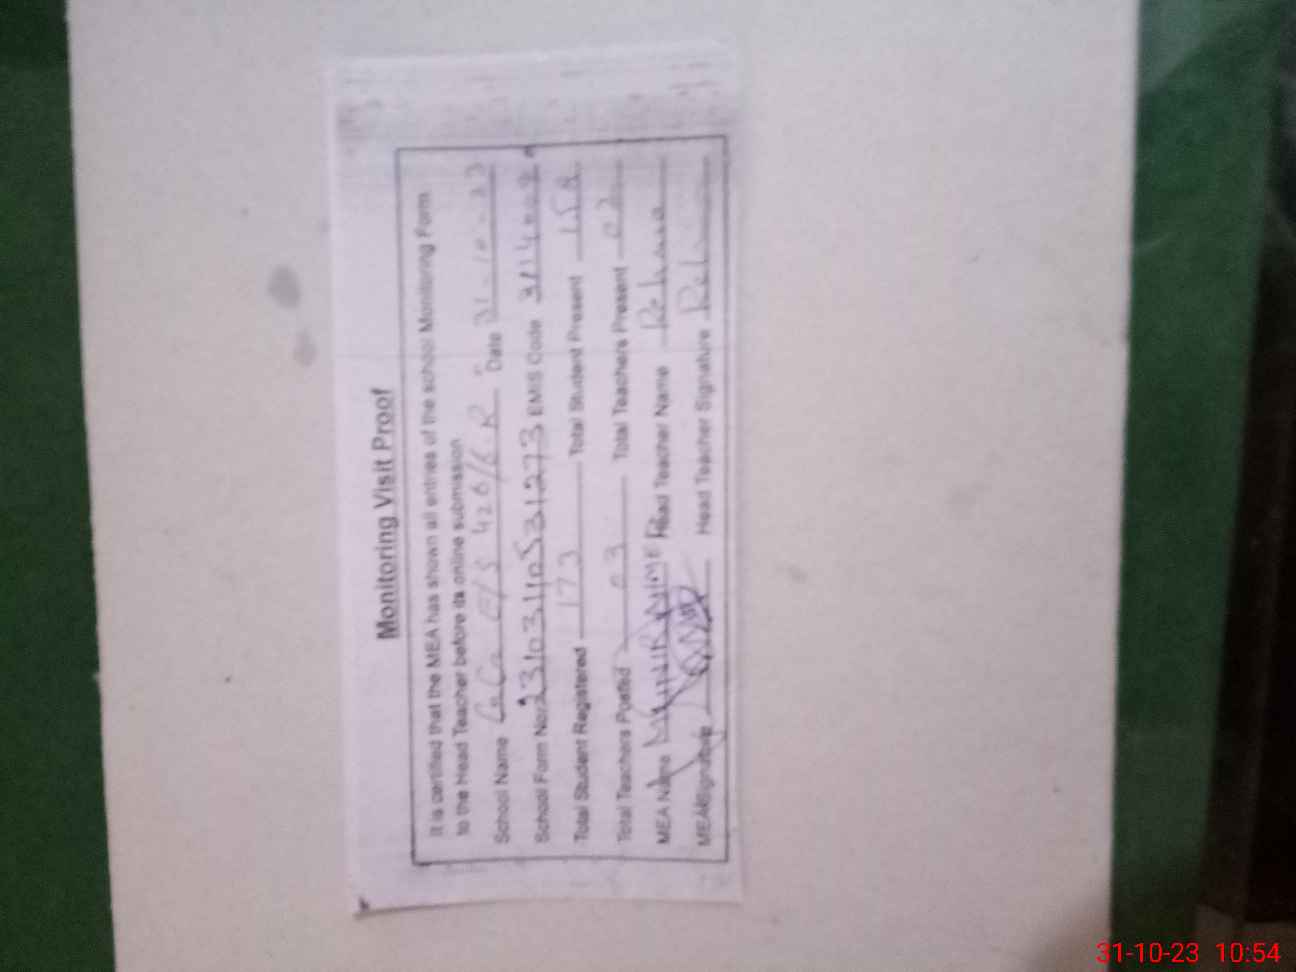 Monitoring Visit Proof
It is certified that the MEA has shown all entries of the school Monitoring Form
to the Head Teacher before its online submission
School Name E/S 426/6 R Date 31-10-23
School Form No: 231031140531273 EMIS Code
Total Student Registered 173 Total Student Present 158
Total Teachers Posted 03 Total Teachers Present 02
MEA Name Head Teacher Name Rehana
MEA Signature Head Teacher Signature Reh
31-10-23 10:54